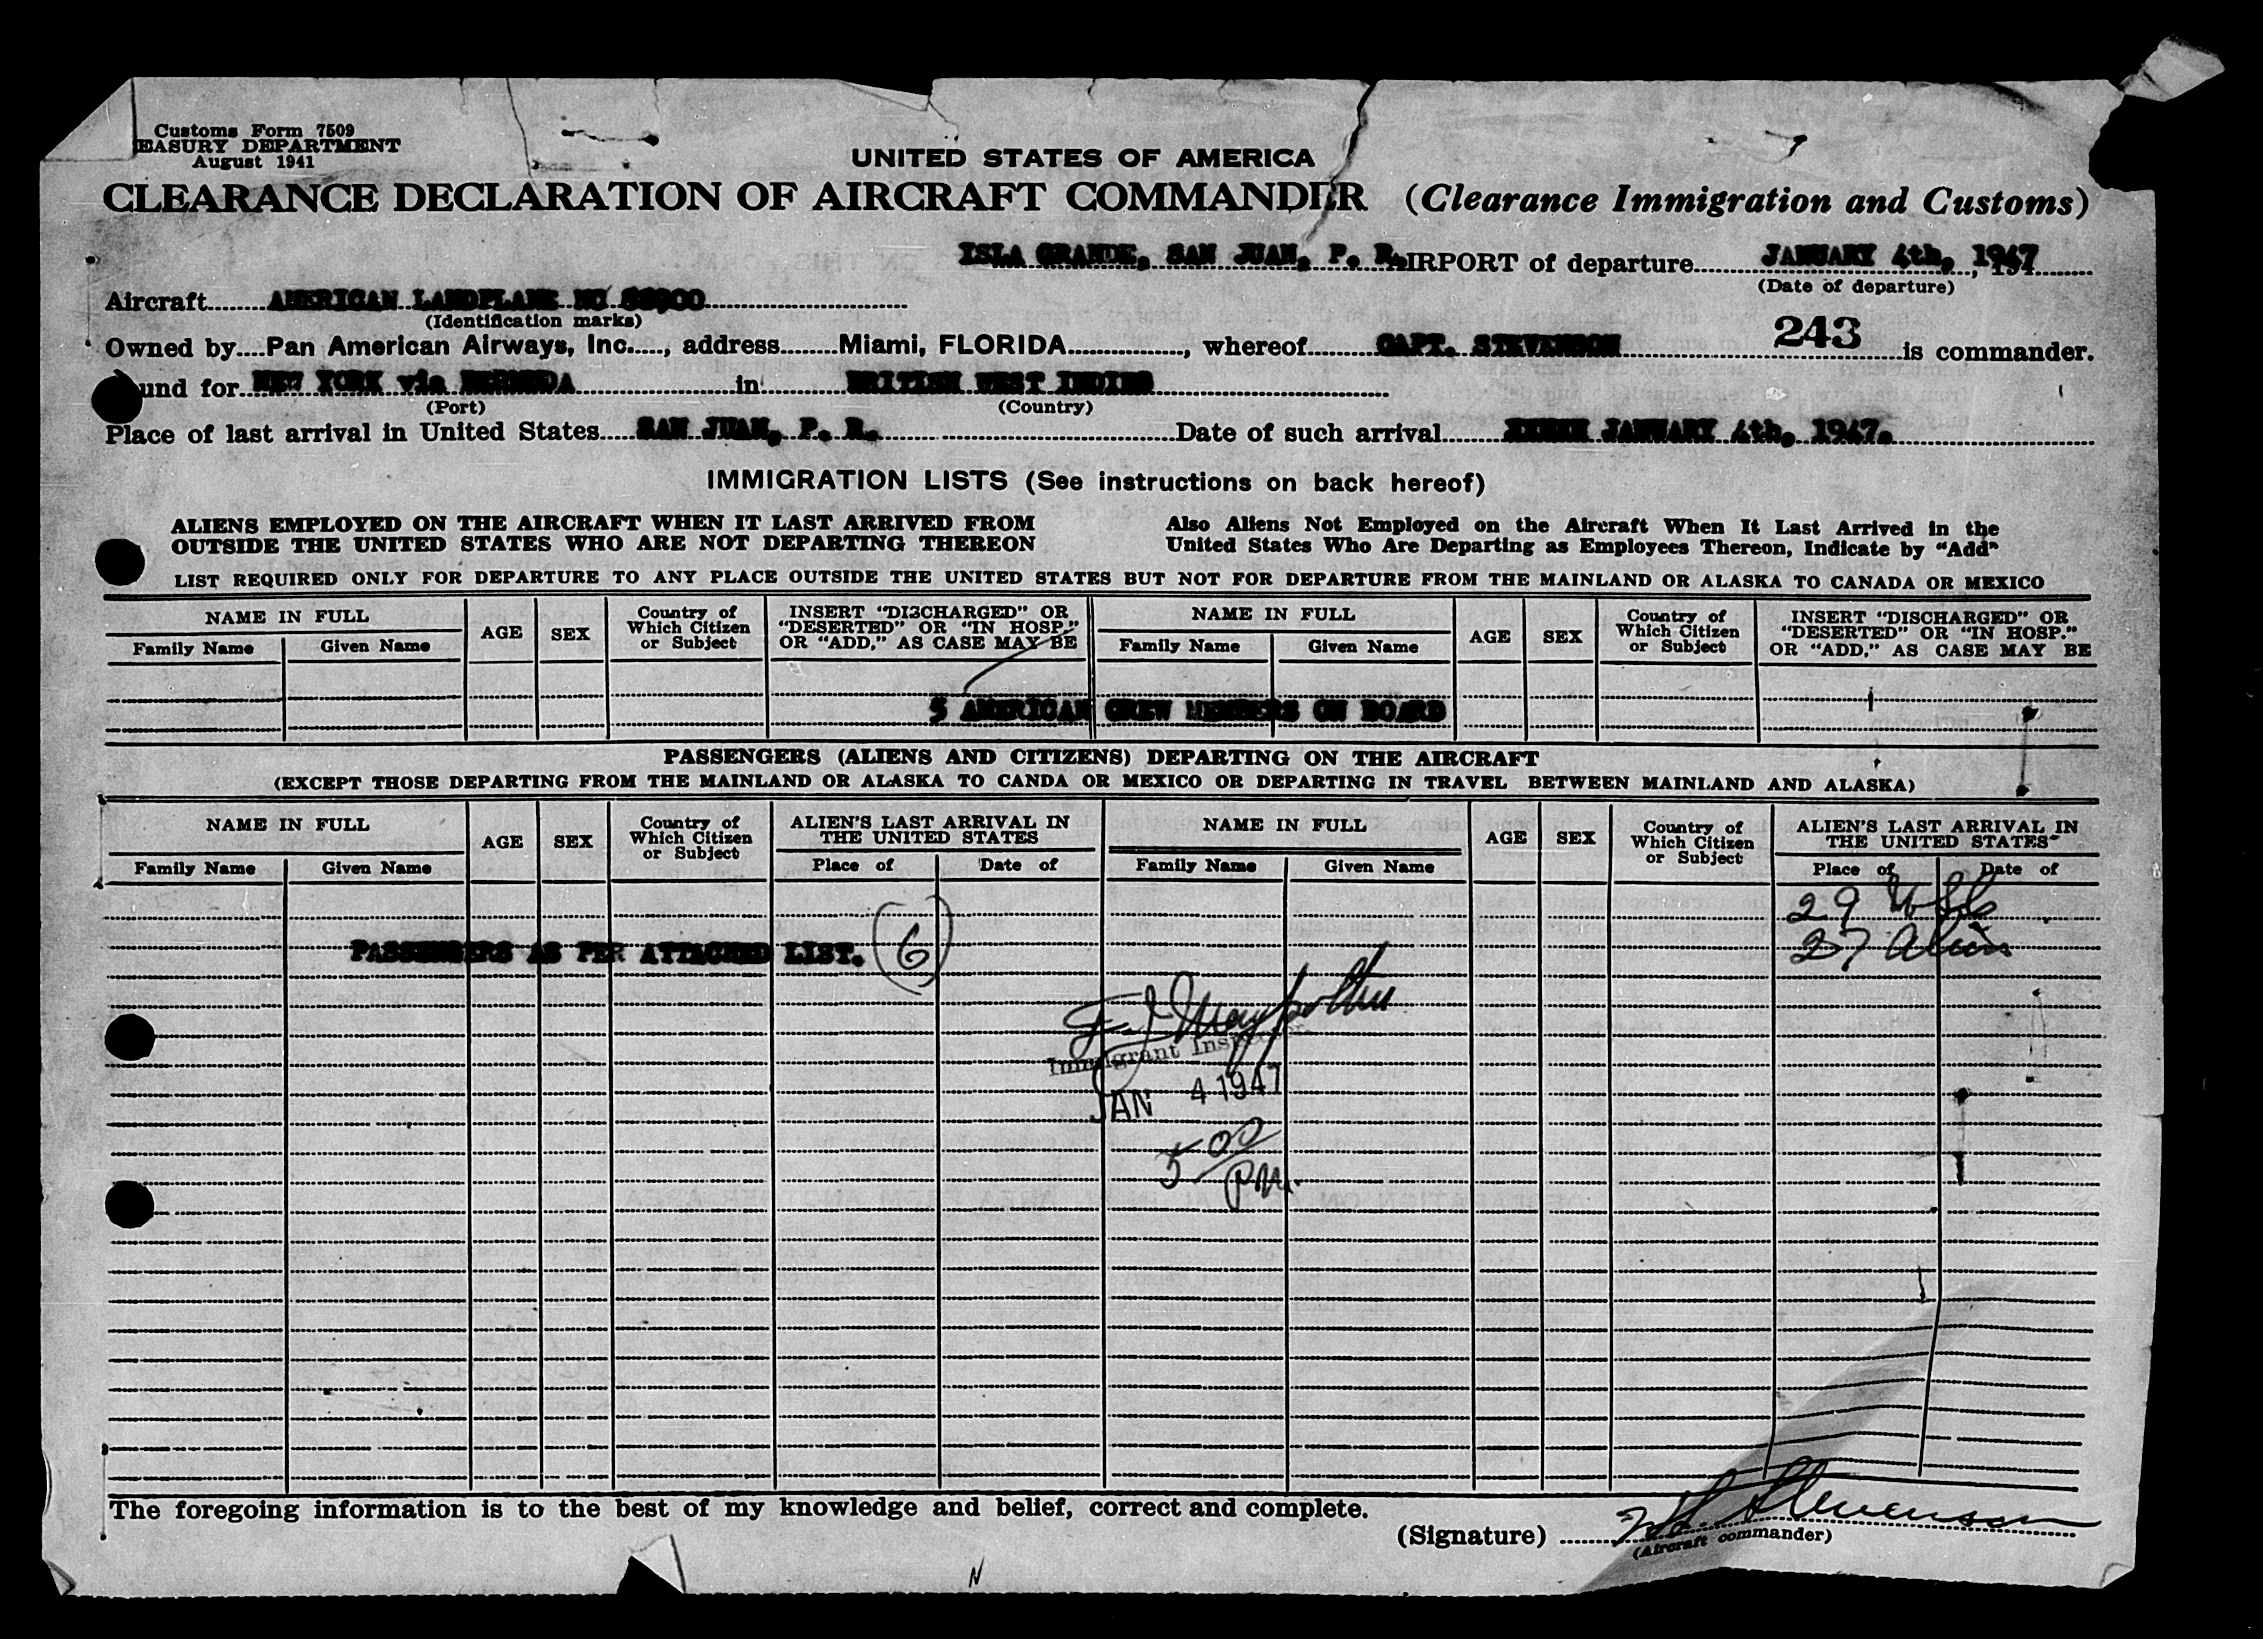 Customs Form 7509
EASURY DEPARTMENT
August 1941
UNITED STATES OF AMERICA
CLEARANCE DECLARATION OF AIRCRAFT COMMANDER (Clearance Immigration and Customs)
ISLA GRANDE, SAN JUAN, P. R. AIRPORT of departure JANUARY 4th, 1947
(Date of departure)
Aircraft AMERICAN LANDPLANE NC 88900
(Identification marks)
243
Owned by Pan American Airways, Inc., address Miami, FLORIDA, whereof CAPT. STEVENSON is commander.
und for NEW YORK via BERMUDA in BRITISH WEST INDIES
(Port) (Country)
Place of last arrival in United States SAN JUAN, P. R. Date of such arrival JANUARY 4th, 1947.
IMMIGRATION LISTS (See instructions on back hereof)
ALIENS EMPLOYED ON THE AIRCRAFT WHEN IT LAST ARRIVED FROM
OUTSIDE THE UNITED STATES WHO ARE NOT DEPARTING THEREON
Also Aliens Not Employed on the Aircraft When It Last Arrived in the
United States Who Are Departing as Employees Thereon, Indicate by "Add"
LIST REQUIRED ONLY FOR DEPARTURE TO ANY PLACE OUTSIDE THE UNITED STATES BUT NOT FOR DEPARTURE FROM THE MAINLAND OR ALASKA TO CANADA OR MEXICO
NAME IN FULL
Family Name Given Name
AGE
SEX
Country of
Which Citizen
or Subject
INSERT "DISCHARGED" OR
"DESERTED" OR "IN HOSP."
OR "ADD," AS CASE MAY BE
NAME IN FULL
Family Name Given Name
AGE
SEX
Country of
Which Citizen
or Subject
INSERT "DISCHARGED" OR
"DESERTED" OR "IN HOSP."
OR "ADD," AS CASE MAY BE
5 AMERICAN CREW MEMBERS ON BOARD
PASSENGERS (ALIENS AND CITIZENS) DEPARTING ON THE AIRCRAFT
(EXCEPT THOSE DEPARTING FROM THE MAINLAND OR ALASKA TO CANDA OR MEXICO OR DEPARTING IN TRAVEL BETWEEN MAINLAND AND ALASKA)
NAME IN FULL
Family Name Given Name
AGE
SEX
Country of
Which Citizen
or Subject
ALIEN'S LAST ARRIVAL IN
THE UNITED STATES
Place of Date of
NAME IN FULL
Family Name Given Name
AGE
SEX
Country of
Which Citizen
or Subject
ALIEN'S LAST ARRIVAL IN
THE UNITED STATES
Place of Date of
29
27 Aliens
PASSENGERS AS PER ATTACHED LIST. (6)
Immigrant Inspector
JAN 4 1947
5 00 PM.
The foregoing information is to the best of my knowledge and belief, correct and complete.
(Signature) Stevenson
(Aircraft commander)
N